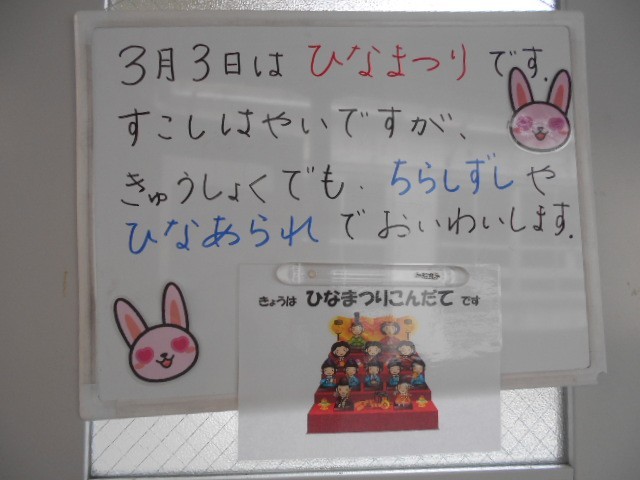 3月3日は ひなまつり です.
すこしはやいですが、
きゅうしょくでも、ちらしずしや
ひなあられでおいわいします.
きょうは ひなまつりこんだて です